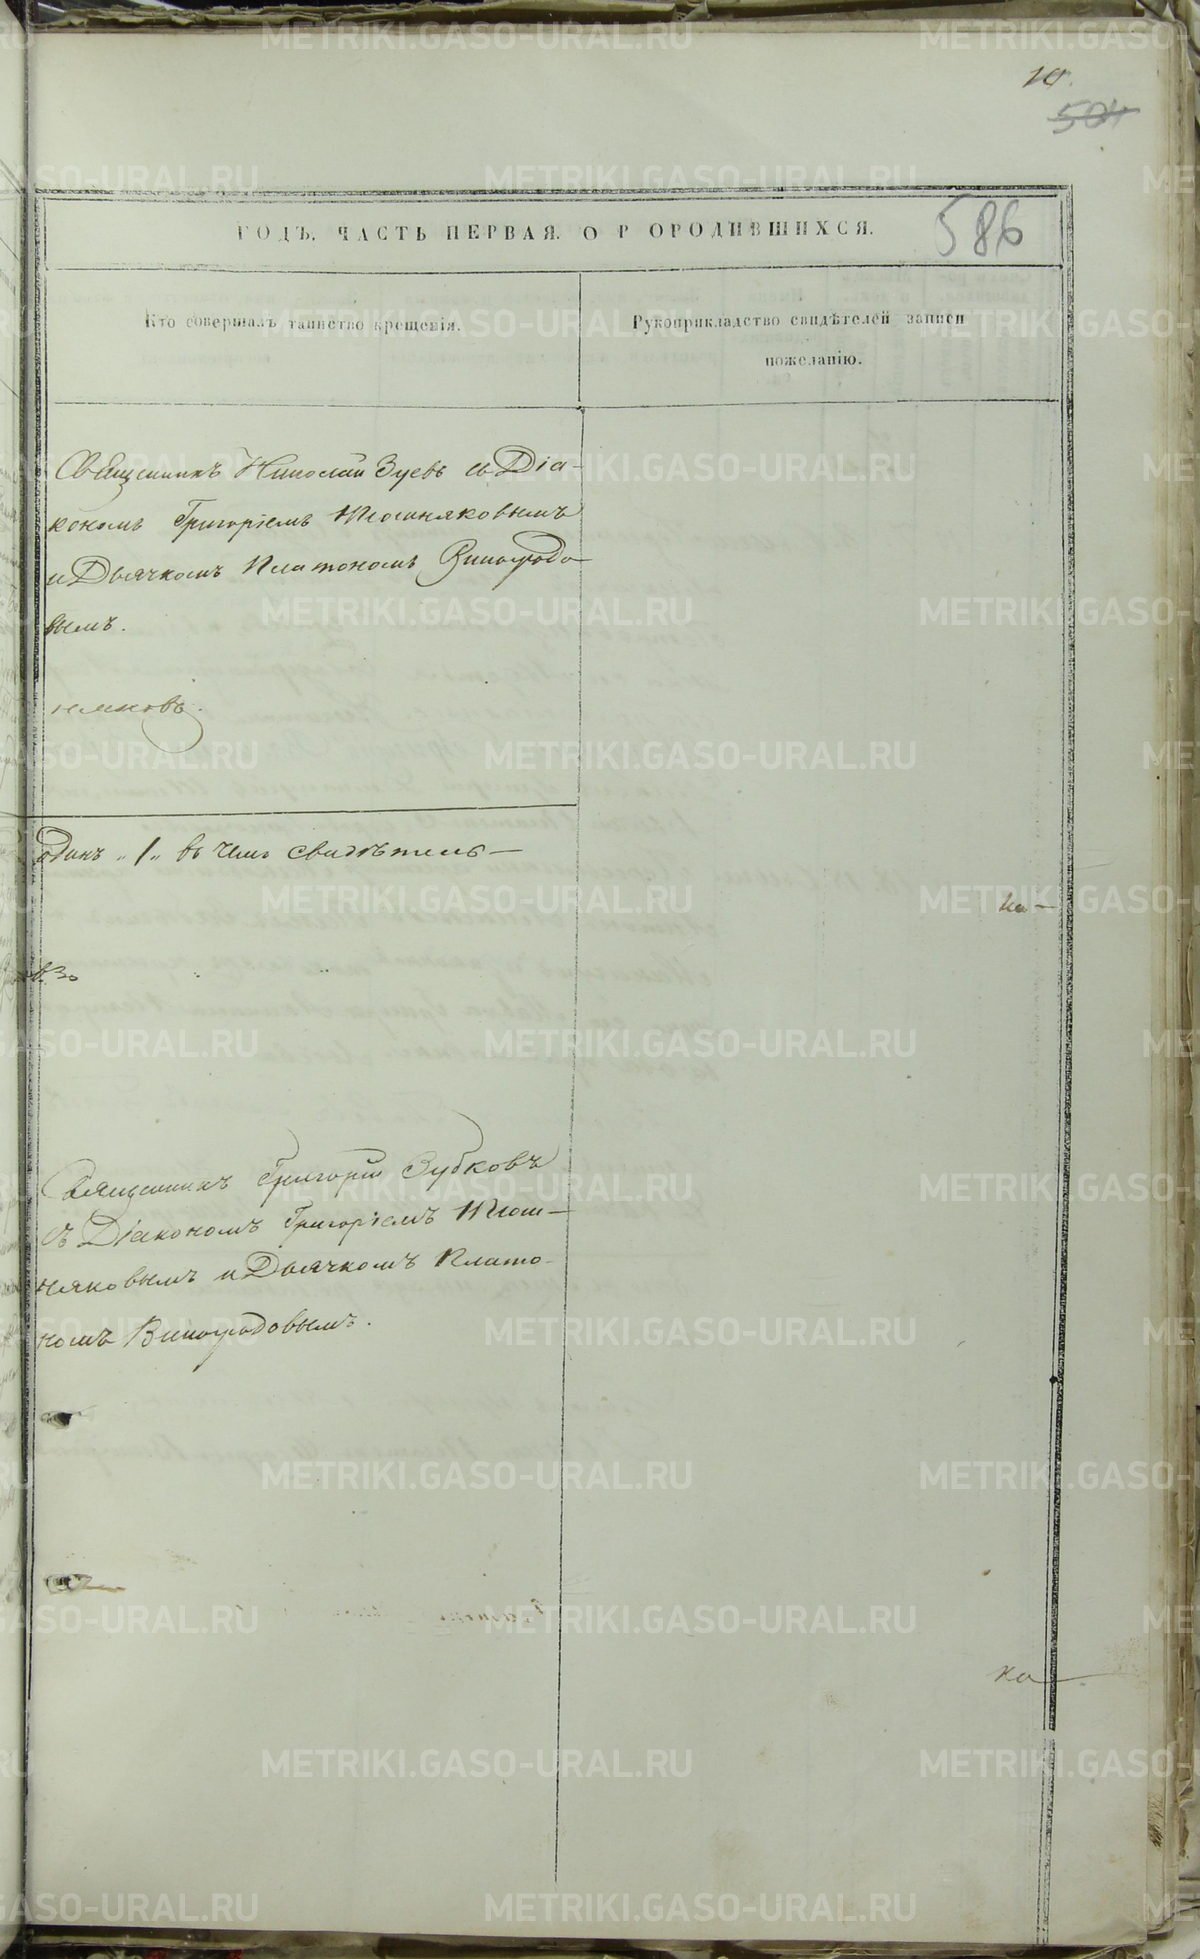 10.
504
586
ГОДЪ. ЧАСТЬ ПЕРВАЯ. О РОРОДИВШИХСЯ.
Кто совершалъ таинство крещенія.
Рукоприкладство свидѣтелей записи
пожеланію.
Священникъ Николай Зуевъ съ Діа-
кономъ Григоріемъ Тюшняковымъ
и Дьячкомъ Платономъ Виноградо-
вымъ.
одинъ „1„ въ чемъ свидѣтель-
ка-
Священникъ Григорій Зубковъ
съ Діакономъ Григоріемъ Тюш-
няковымъ и Дьячкомъ Плато-
номъ Виноградовымъ.
ка-
METRIKI.GASO-URAL.RU